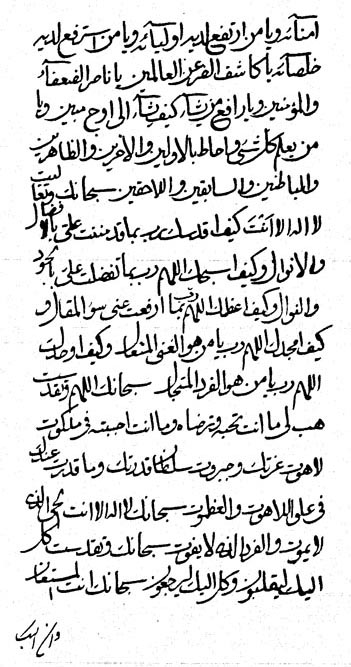 امنآئه ویامن ارتفع لدیه اولیآئه ویامن استرفع لدیه
خلصآئه یا کاشف الضر عن العالمین یا ناصر الضعفآء
والمؤمنین ویا رافع من یشآء کیف یشآء الی اوج مبین ویا
من یعلم کل شیء واحاط بالاولین والاخرین والظاهرین
والباطنین والسابقین واللاحقین سبحانک وتعالیت
لا اله الا انت کیف اقدسک رب بما قد مننت علی بالافضال
والانوال وکیف اسبحک اللهم رب بما تفضلت علی بالجود
والنوال وکیف اعظمک اللهم رب بما ارفعت عنی سوء المقال و
کیف امجدک اللهم رب یا من هو الغنی المتعال وکیف اوحدک
اللهم رب یا من هو الفرد سبحانک اللهم وتقدست
هب لی ما انت تحبه وترضاه وما انت احببته فی ملکوت
لاهوت عزتک وجبروت سلطان قدرتک وما قدرت عندک
فی علو اللاهوت والعظموت سبحانک لا اله الا انت الحی الذی
لا یموت والفرد الذی لا یفوت سبحانک وتقدست کل
الیک لیقلبون وکل الیک لیرجعون سبحانک انت المستعان